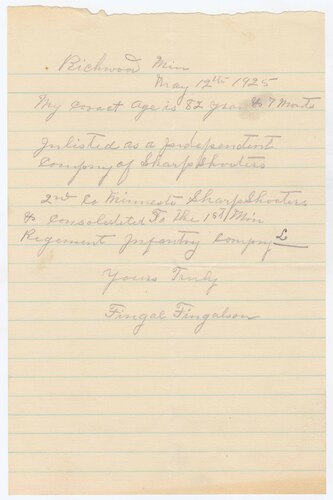 Richwood Min
May 12th 1925
My Corect Age is 82 years & 7 Monts
Inlisted as a Independent
Company of Sharp Shooters
2nd Co Minnesto Sharp Shooters
& Consolidited To the 1st Min
Regement Infantry Compny L
Yours Truly
Fingal Fingalson